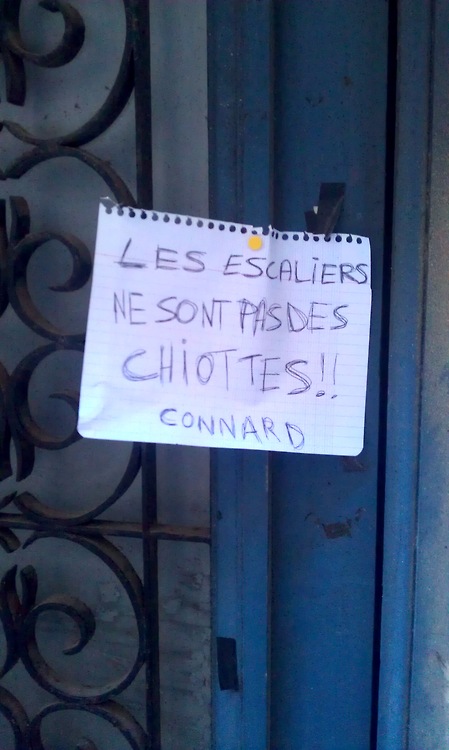 LES ESCALiERS
NE SONT PAS DES
CHiOTTES!!
CONNARD